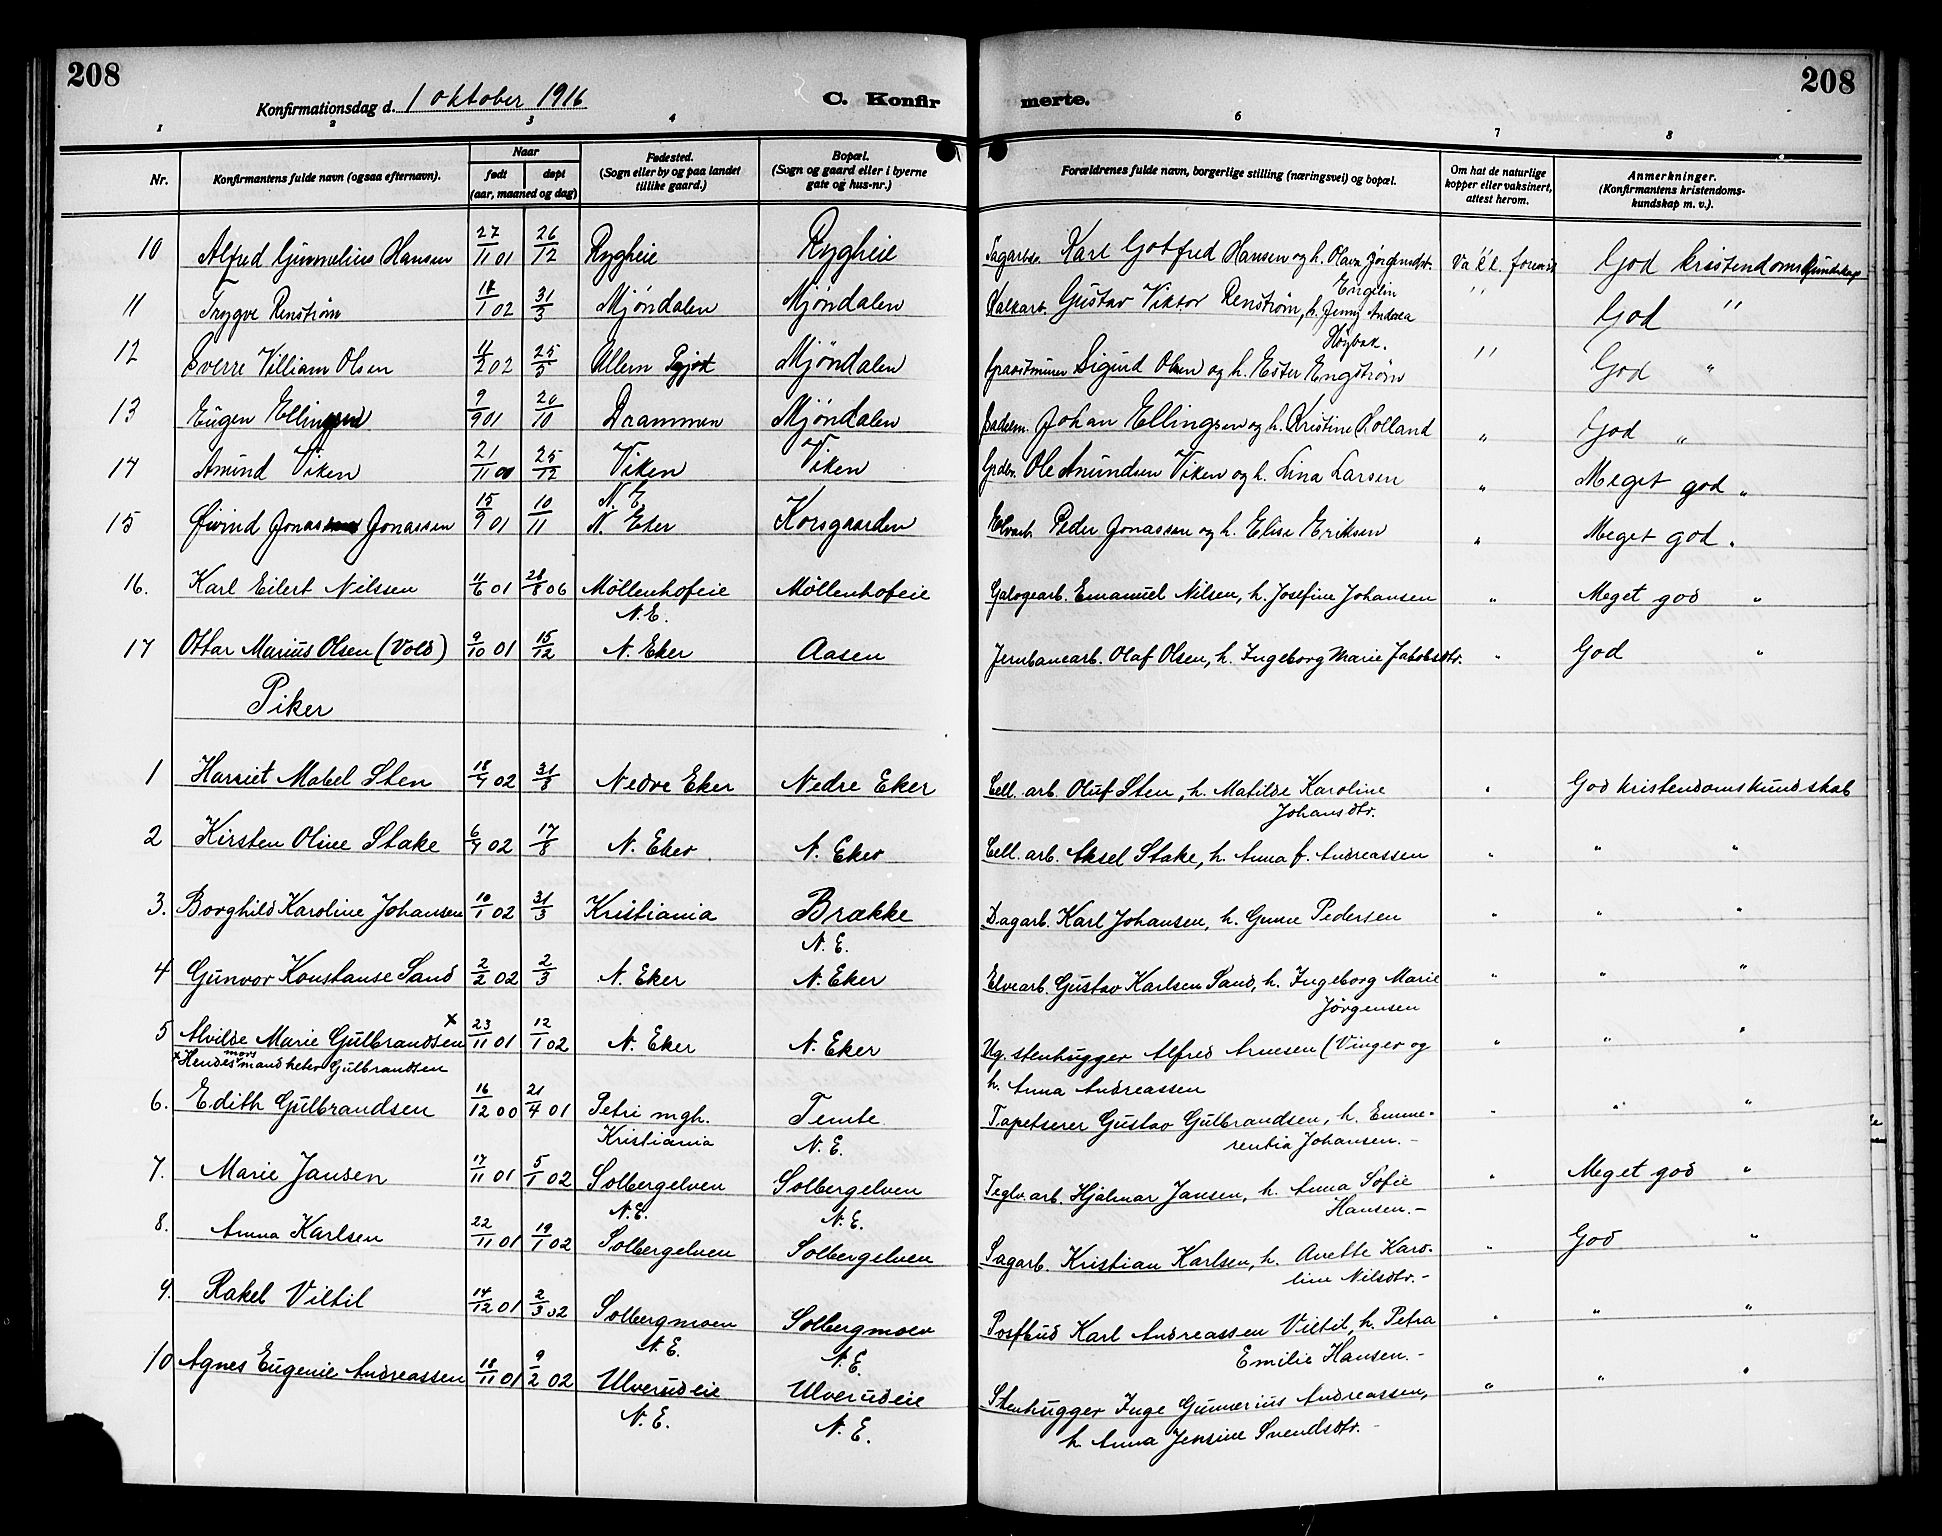 208
Konfirmationsdag d. 1 oktober 1916
C. Konfir
merte.
208
1 2 3 4 6 7 8
Nr.
Konfirmantens fulde navn (ogsaa efternavn).
Naar
født
døpt
(aar, maaned og dag)
Fødested.
(Sogn eller by og paa landet
tillike gaard.)
Bopæl.
(Sogn og gaard eller i byerne
gate og hus-nr.)
Forældrenes fulde navn, borgerlige stilling (næringsvei) og bopæl.
Om hat de naturlige
kopper eller vaksinert,
attest herom.
Anmerkninger.
(Konfirmantens kristendoms-
kundskap m. v.).
10 Alfred Hansen 27/11 01 26/12 Rygheie Rygheie Sagarb. Karl Gotfred Hansen og h. Olava God kristendomskundskap
11 Trygve Renstrøm 18/1 02 31/3 Mjöndalen Mjöndalen Valsearb. Gustav Viktor Renström, h. Jenny Andrea " God "
Engelin
12 Sverre Villiam Olsen 11/2 02 25/5 Ullern Mjöndalen Sigurd Olsen og h. Ester Engström " God "
13 Eugen Ellingsen 9/9 01 20/10 Drammen Mjöndalen Johan Ellingsen og h. Kristine Holland " God "
14 Amund Viken 21/11 00 25/12 Viken Viken Ole Amundsen Viken og h. Lina Larsen " Meget god "
N. E.
15 Øivind Jonassen 15/9 01 10/11 N. Eker Korsgaarden Elvearb. Peder Jonassen og h. Elise Eriksen " Meget god "
16. Karl Eilert Nilssen 11/6 01 28/8 06 Möllenhofeie Möllenhofeie Galogearb. Emanuel Nilsen, h. Josefine Johansen " Meget god "
N. E.
17 Ottar Marius Olsen (Vold) 9/10 01 15/12 N. Eker Aasen Jernbanearb. Olaf Olsen, h. Ingeborg Marie Jakobsdtr. " God "
Piker
1 Harriet Mabel Sten 18/7 02 31/8 Nedre Eker Nedre Eker Cell. arb. Oluf Sten, h. Matilde Karoline " God kristendomskundskab
Johansdtr.
2 Kirsten Oline Stake 6/7 02 17/8 N. Eker N. Eker Cell. arb. Aksel Stake, h. Anna f. Andreassen " " "
3. Borghild Karoline Johansen 10/1 02 31/3 Kristiania Brække Dagarb. Karl Johansen, h. Gunne Pedersen " " "
N. E.
4 Gunvor Konstanse Sand 2/2 02 2/3 N. Eker N. Eker Elvearb. Gustav Karlsen Sand, h. Ingeborg Marie " " "
Jörgensen
5 Alvilde Marie Gulbrandsen x 23/11 01 12/1 02 N. Eker N. Eker Ug. stenhugger Alfred Arnesen (Vinger og " " "
x Hendes mors mand heter Gulbrandsen h. Anna Andreassen
6. Edith Gulbrandsen 16/12 00 21/4 01 Petri mgh. Temte Tapetserer Gustav Gulbrandsen, h. Emme- " " "
Kristiania N. E. rentia Johansen. -
7. Marie Jansen 17/11 01 5/1 02 Solbergelven Solbergelven Teglv. arb. Hjalmar Jansen, h. Anna Sofie " Meget god "
N. E. N. E. Hansen. -
8. Anna Karlsen 22/11 01 19/1 02 Solbergelven Solbergelven Sagarb. Kristian Karlsen, h. Anette Karo- " God "
line Nilsdtr. -
9. Rakel Viltil 14/12 01 2/3 02 Solbergmoen Solbergmoen Postbud Karl Andreassen Viltil, h. Petra " " "
N. E. N. E. Emilie Hansen. -
10 Agnes Eugenie Andreassen 18/11 01 9/2 02 Ulverudeie Ulverudeie Stenhugger Inge Gunnerius Andreassen, " " "
N. E. N. E. h. Anna Jensine Svendsdtr. -